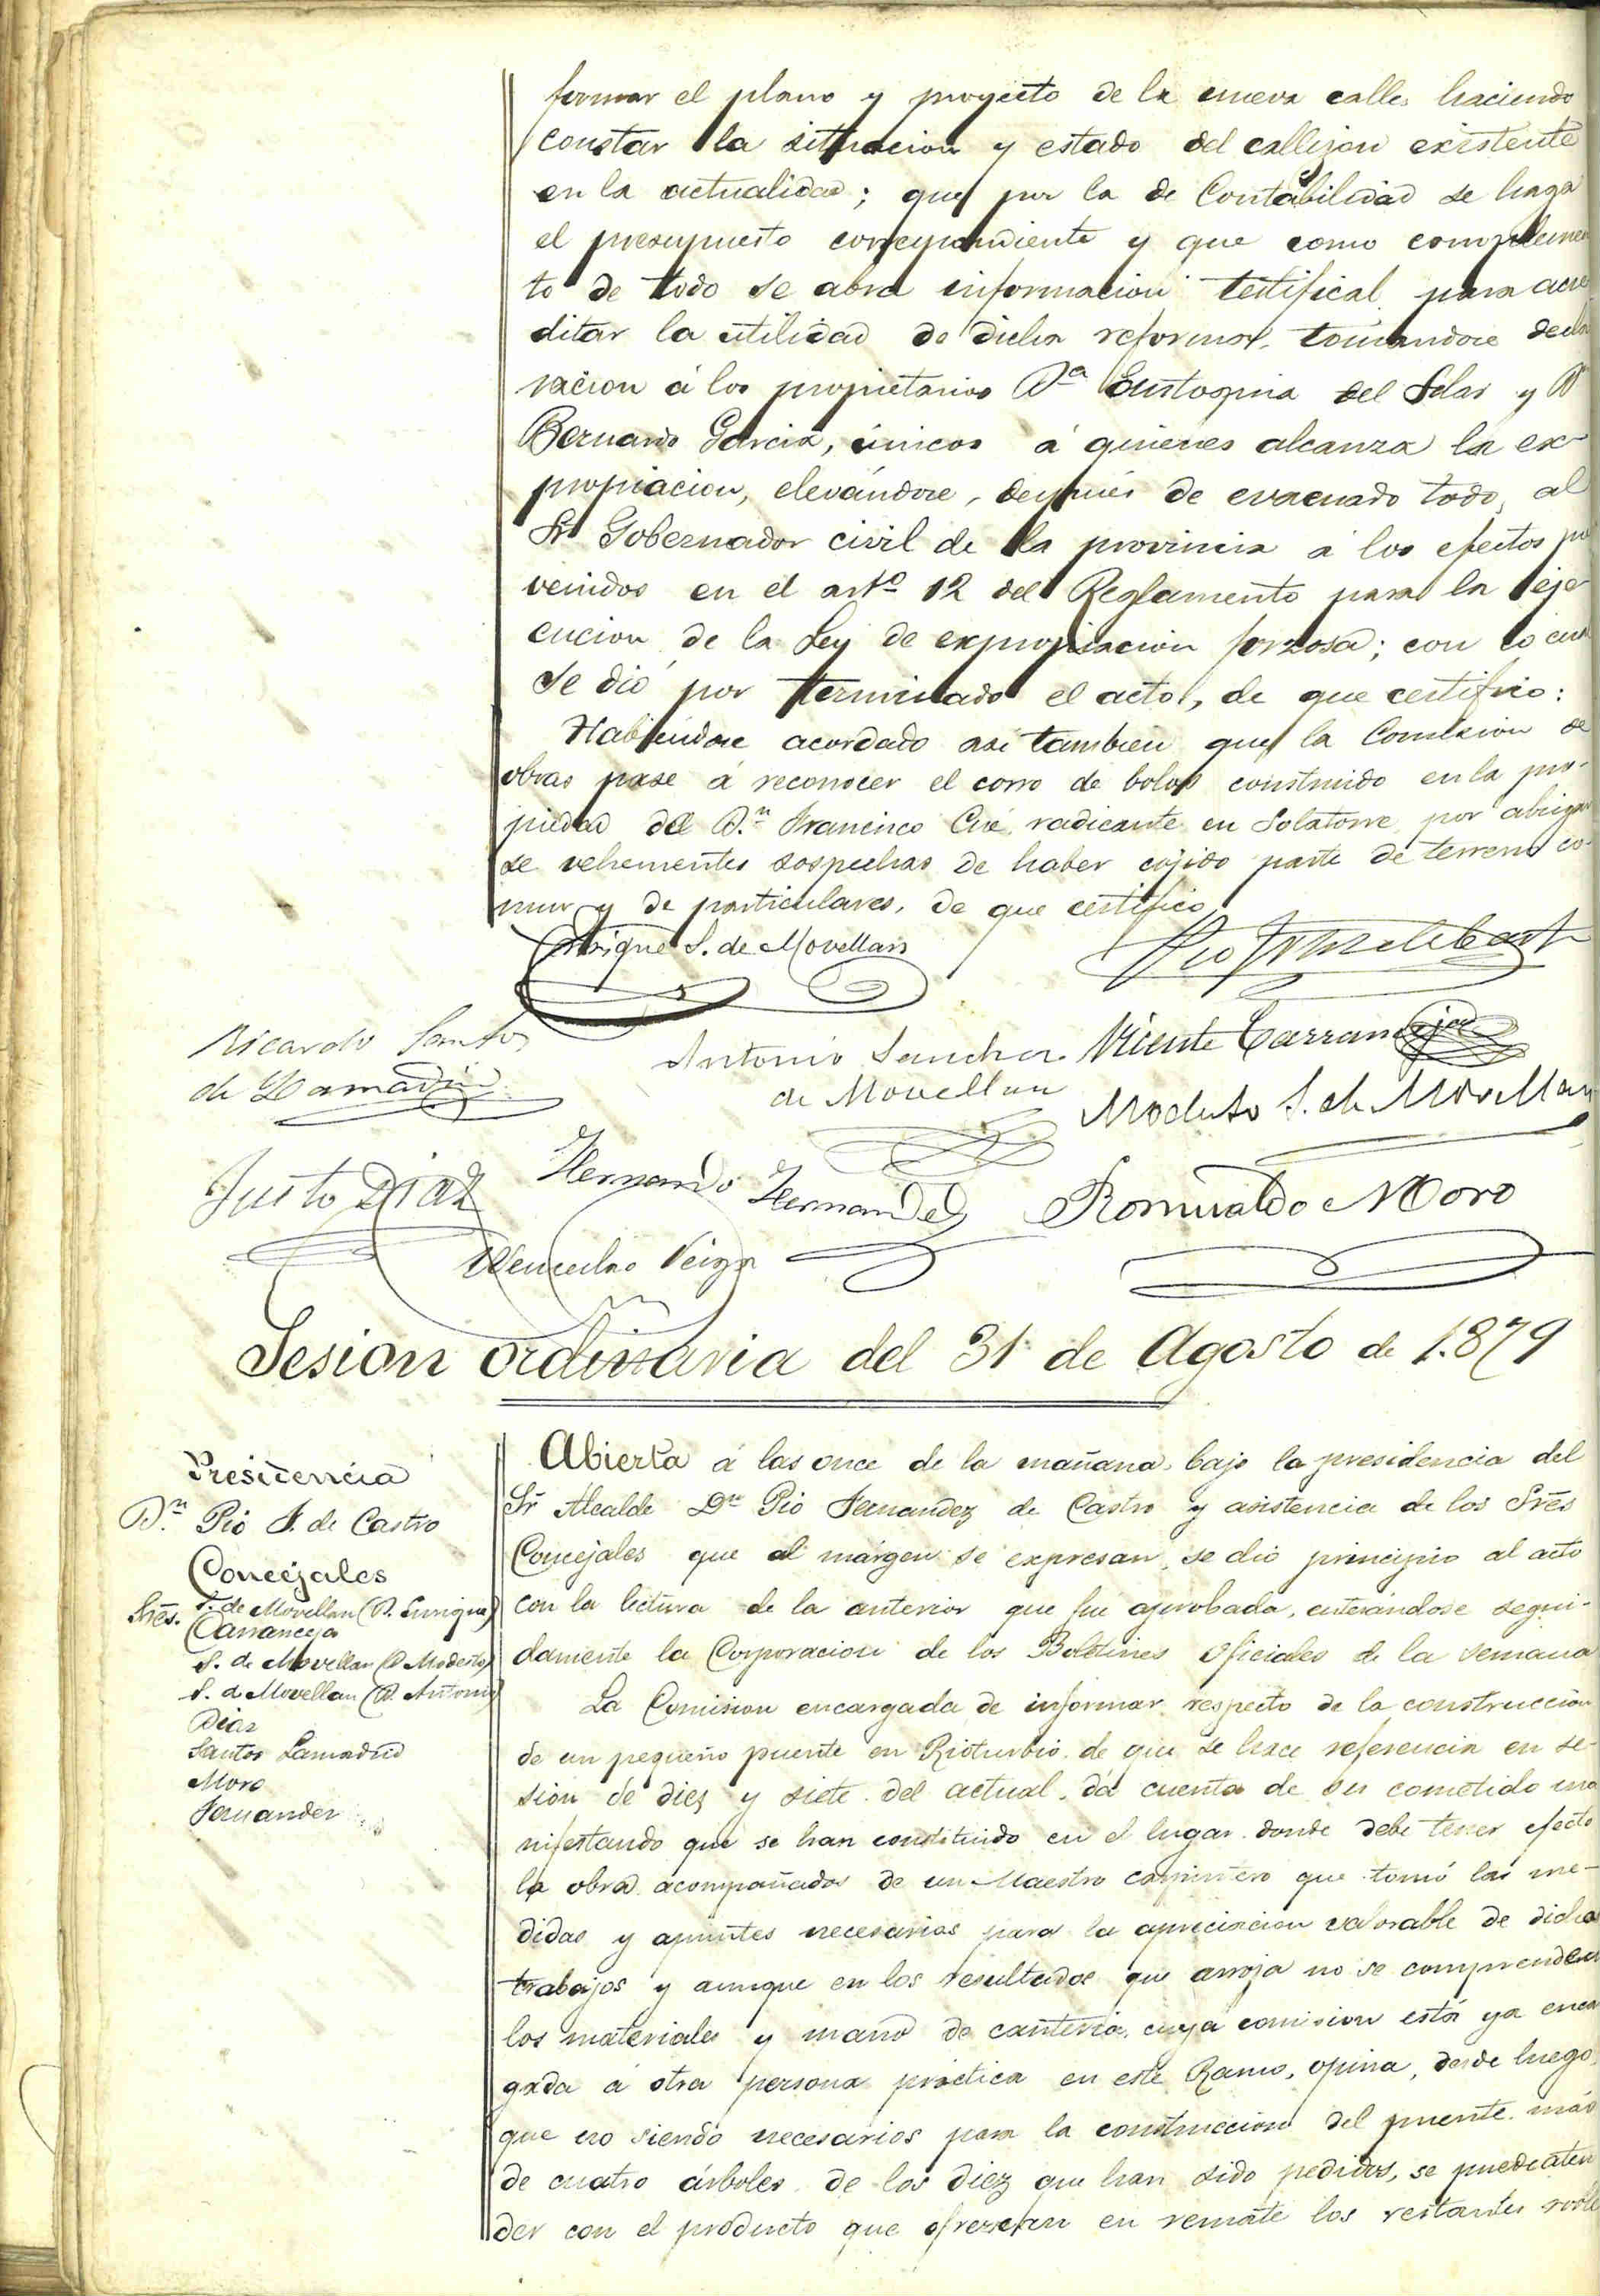 formar el plano y proyecto de la nueva calle, haciendo
constar la situacion y estado del callejon existente
en la actualidad; que por la de Contabilidad se haga
el presupuesto correspondiente y que como complemen
to de todo se abra informacion testifical para acre
ditar la utilidad de dicha reforma, tomandose decla
racion á los propietarios Dª Eustoquia del Solar y Dn
Bernardo Garcia, únicos á quienes alcanza la ex-
propiacion, elevándose, después de evacuado todo, al
Sr Gobernador civil de la provincia á los efectos pre
venidos en el artº 12 del Reglamento para la eje
cucion de la Ley de expropiacion forzosa; con lo cual
se dió por terminado el acto, de que certifico:
Habiéndose acordado asi tambien que la Comision de
obras pase á reconocer el corro de bolos construido en la pro-
piedad del D.n Francisco Cué, radicante en Solatorre, por abrigar
se vehementes sospechas de haber cojido parte de terreno co-
mun y de particulares, de que certifico,
Enrique S. de Movellan
Pio Frnz de Castro
Ricardo Santos
de Lamadrid
Antonio Sanchez
de Movellan
Vicente Carranceja
Modesto S. de Movellan
Justo Diaz
Hernando Hernandez
Romualdo Moro
Wenceslao Veiga
Sesion ordinaria del 31 de Agosto de 1.879
Presidencia
D.n Pió F. de Castro
Concejales
Srēs. S. de Movellan (D. Enrique)
Carranceja
S. de Movellan (D Modesto)
S. d Movellan (D. Antonio)
Diaz
Santos Lamadrid
Moro
Fernandez
Abierta á las once de la mañana, bajo la presidencia del
Sr Alcalde Dn Pió Fernandez de Castro y asistencia de los Srēs
Concejales que al márgen se expresan, se dió principio al acto
con la lectura de la anterior que fué aprobada, enterándose segui-
damente la Corporacion de los Boletines Oficiales de la semana
La Comision encargada de informar respecto de la construccion
de un pequeño puente en Rioturbio de que se hace referencia en se-
sion de diez y siete del actual, dá cuenta de su cometido ma
nifestando que se han constituido en el lugar donde debe tener efecto
la obra acompañados de un Maestro carpintero que tomó las me-
didas y apuntes necesarios para la apreciacion valorable de dichos
trabajos y aunque en los resultados que arroja no se comprenden
los materiales y mano de canteria, cuya comision está ya encar
gada á otra persona práctica en este Ramo, opina, desde luego,
que no siendo necesarios para la construccion del puente más
de cuatro árboles de los diez que han sido pedidos, se puede aten
der con el producto que ofrezcan en remate los restantes roble